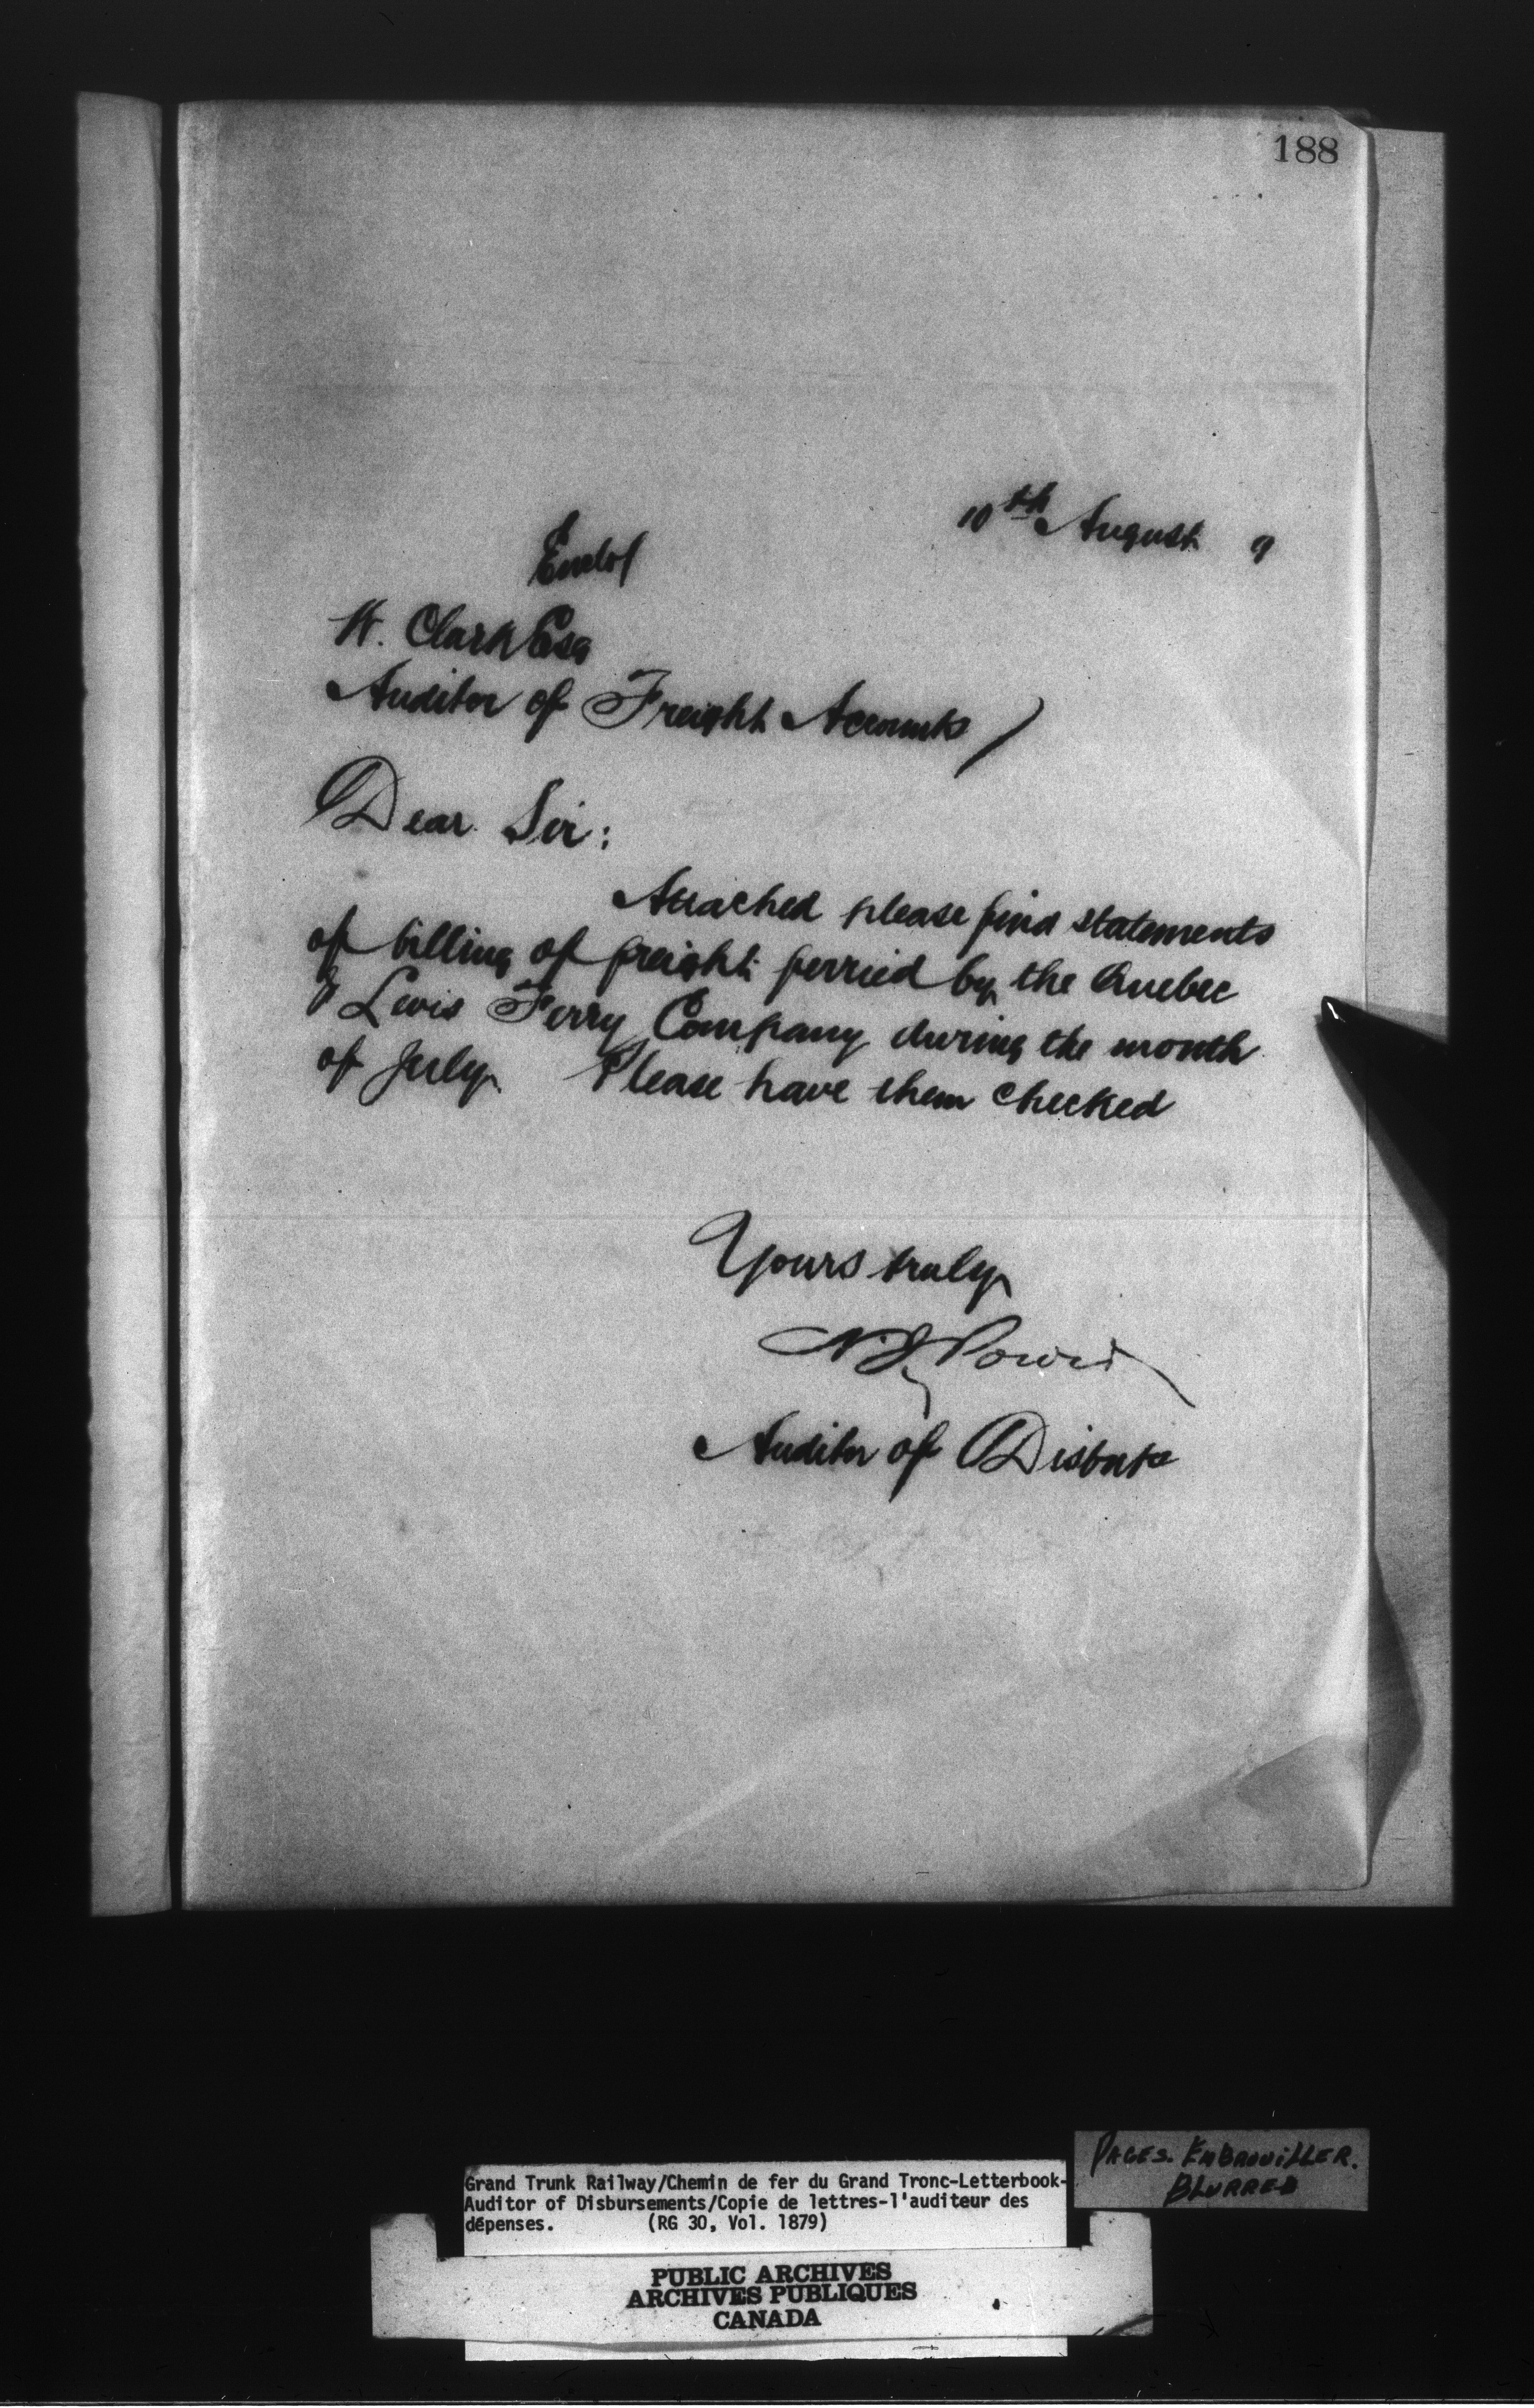 188
10th August 9
Enclos
W. Clark Esq
Auditor of Freight Accounts
Dear Sir:
Attached please find statements
of billing of freight ferried by the Quebec
& Levis Ferry Company during the month
of July Please have them checked
Yours truly
Auditor of Disbuts
PAGES. EMBROUILLER.
BLURRED
Grand Trunk Railway/Chemin de fer du Grand Tronc-Letterbook-
Auditor of Disbursements/Copie de lettres-l'auditeur des
dépenses. (RG 30, Vol. 1879)
PUBLIC ARCHIVES
ARCHIVES PUBLIQUES
CANADA